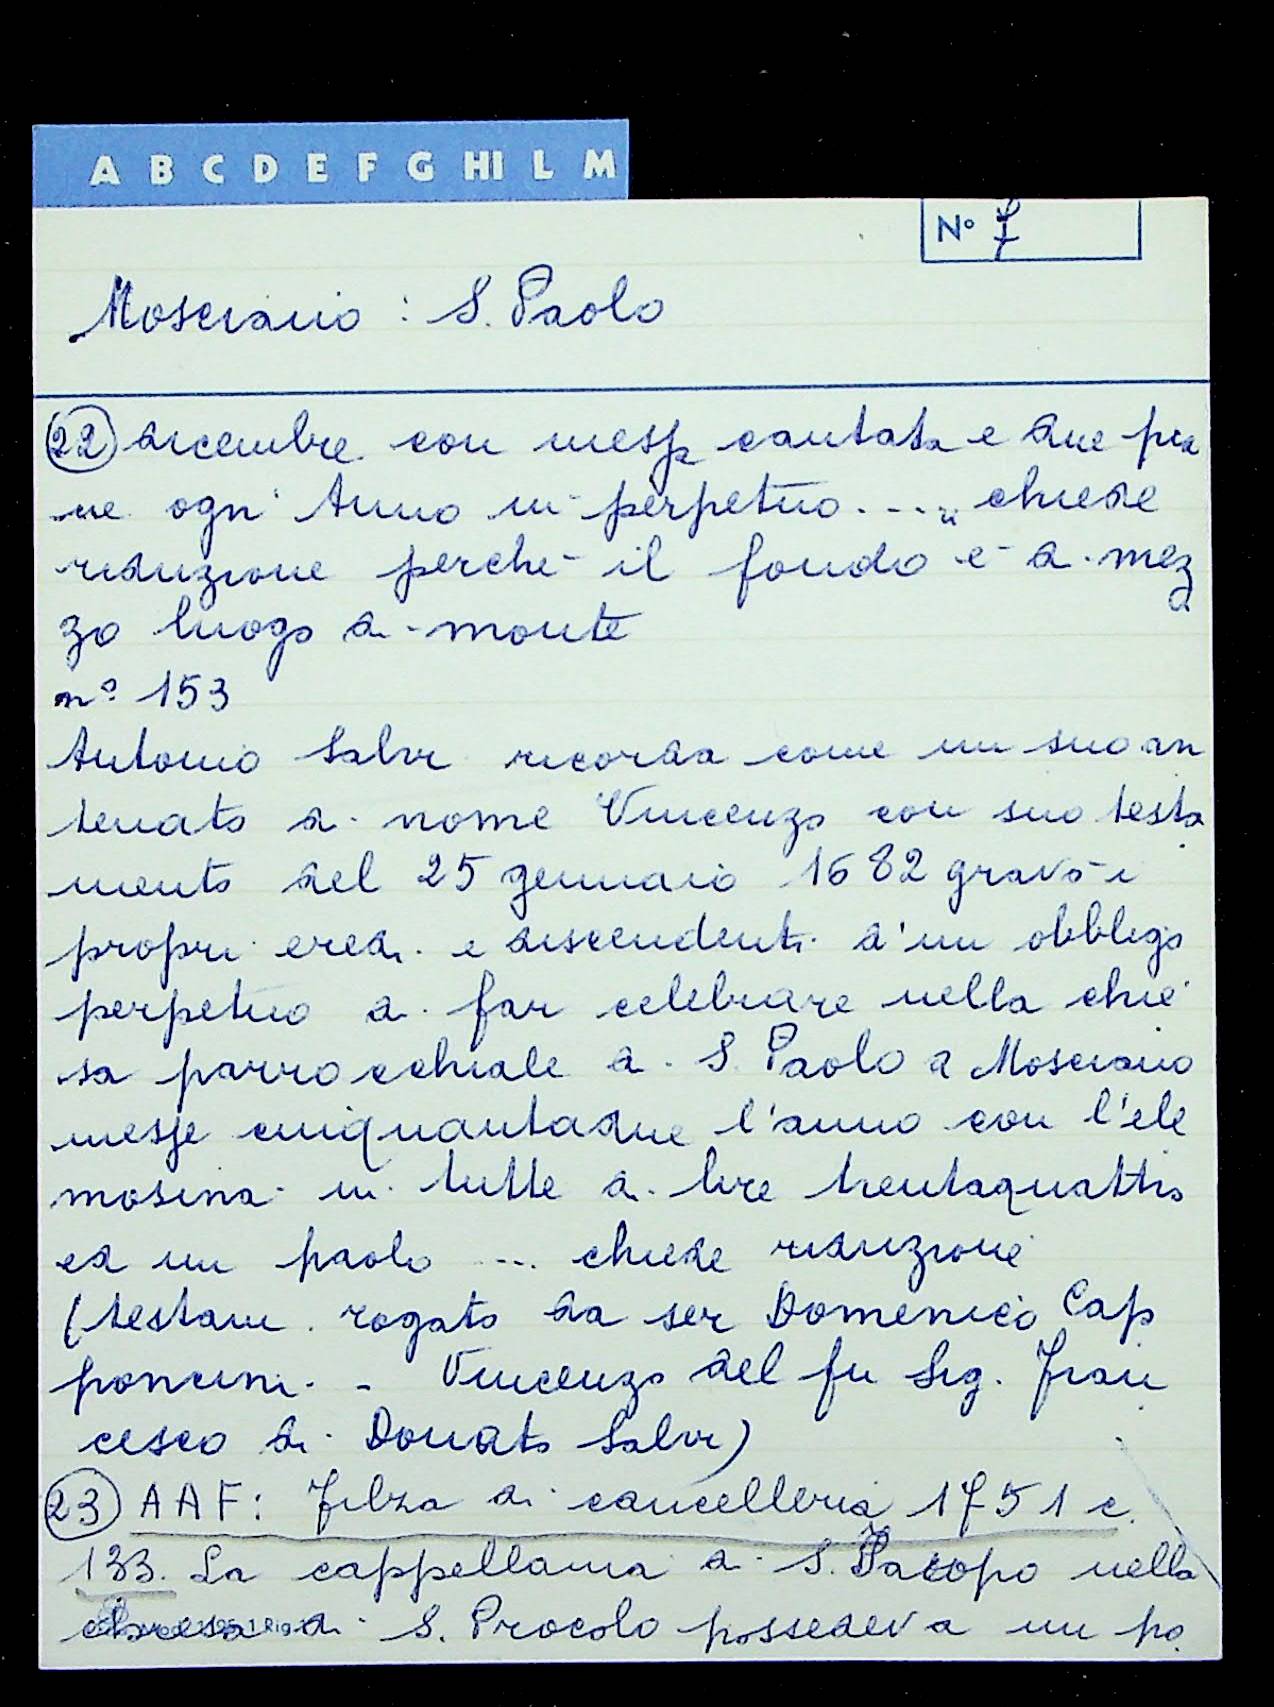 A B C D E F G HI L M
N° 7
Mosciano : S. Paolo
22 dicembre con messa cantata e due pia
ne ogni Anno in perpetuo...." chiede
riduzione perchè il fondo è di mez
zo luogo di monte
n° 153
Antonio Salvi ricorda come un suo an
tenato di nome Vincenzo con suo testa
mento del 25 gennaio 1682 gravò i
propri eredi e discendenti d'un obbligo
perpetuo di far celebrare nella chie
sa parrocchiale di S. Paolo a Mosciano
messe cinquantadue l'anno con l'ele
mosina in tutte di lire trentaquattro
ed un paolo ... chiede riduzione
(testam. rogato da ser Domenico Cap
poncini - Vincenzo del fu Sig. Fran
cesco di Donato Salvi)
23 AAF: Filza di cancelleria 1751 c.
133. La cappellania di S. Jacopo nella
chiesa di S. Procolo possedeva un po